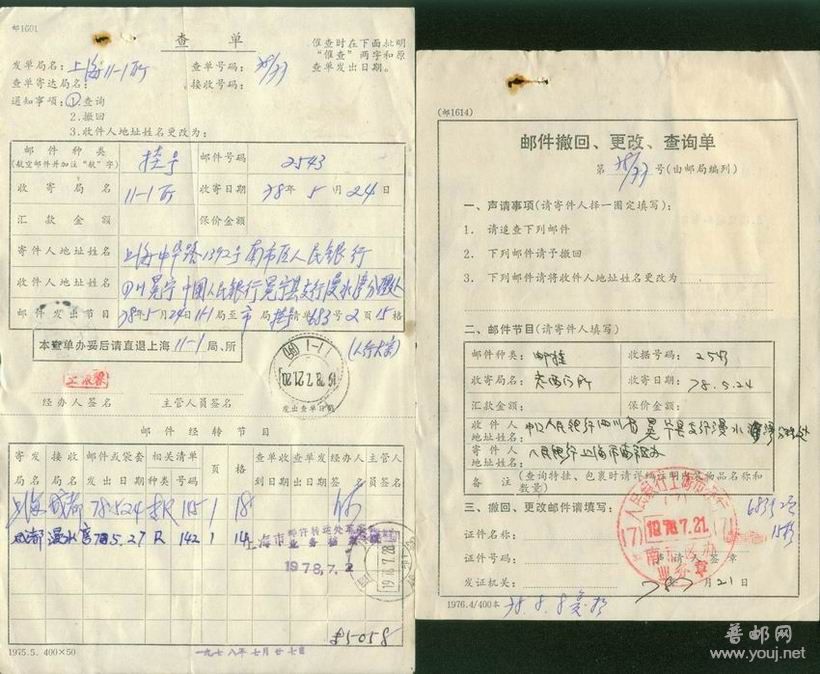 邮1601
查单
催查时在下面批明
“催查”两字和原
查单发出日期。
发单局名：上海11-1所
查单号码：
查单寄达局名：
接收号码：
通知事项：①查询
2.撤回
3.收件人地址姓名更改为：
邮件种类
(航空邮件并加注“航”字)
挂号
邮件号码
2543
收寄局名
11-1所
收寄日期
78年5月24日
汇款金额
保价金额
寄件人地址姓名
上海中华路1392号南市区人民银行
收件人地址姓名
四川冕宁中国人民银行冕宁县支行漫水湾分理处
邮件发出节目
78年5月24日11-1局至市局挂清单683号2页15格
本查单办妥后请直退上海11-1局、所
(46) 11-1
1978.7.21.20
经办人签名
主管人员签名
发出查单日戳
邮件经转节目
寄发局名
接收局名
邮件或袋套日期
相关清单种类
号码
页
格
查单收到日期
查单发出日期
经办人签名
主管人员签名
上海 成都 78.5.24 R 105 1 18
成都 漫水湾 78.5.27 R 142 1 14
上海市邮件转运处
业务档案
1978.7.2
1978.7.28
85058
1975.5. 400×50
一九七八年七月廿七日
(邮1614)
邮件撤回、更改、查询单
第 号(由邮局编列)
一、声请事项(请寄件人择一圈定填写)：
1. 请追查下列邮件
2. 下列邮件请予撤回
3. 下列邮件请将收件人地址姓名更改为
二、邮件节目(请寄件人填写)
邮件种类：
邮挂
收据号码：
2543
收寄局名：
老西门所
收寄日期：
78.5.24
汇款金额：
保价金额：
收件人地址姓名：
中国人民银行四川省冕宁县支行漫水湾分理处
寄件人地址姓名：
人民银行上海市南市办
备注
(查询特挂、包裹时请详细注明内装物品名称和数量)
三、撤回、更改邮件请填写：
683号2页
15格
证件名称：
证件号码：
声请人签章
发证机关：
78年7月21日
人民银行上海市分行
(17) 1978.7.21 (17)
南市区办
业务章
1976.4/400本
78.8.8
普邮网
www.youj.net